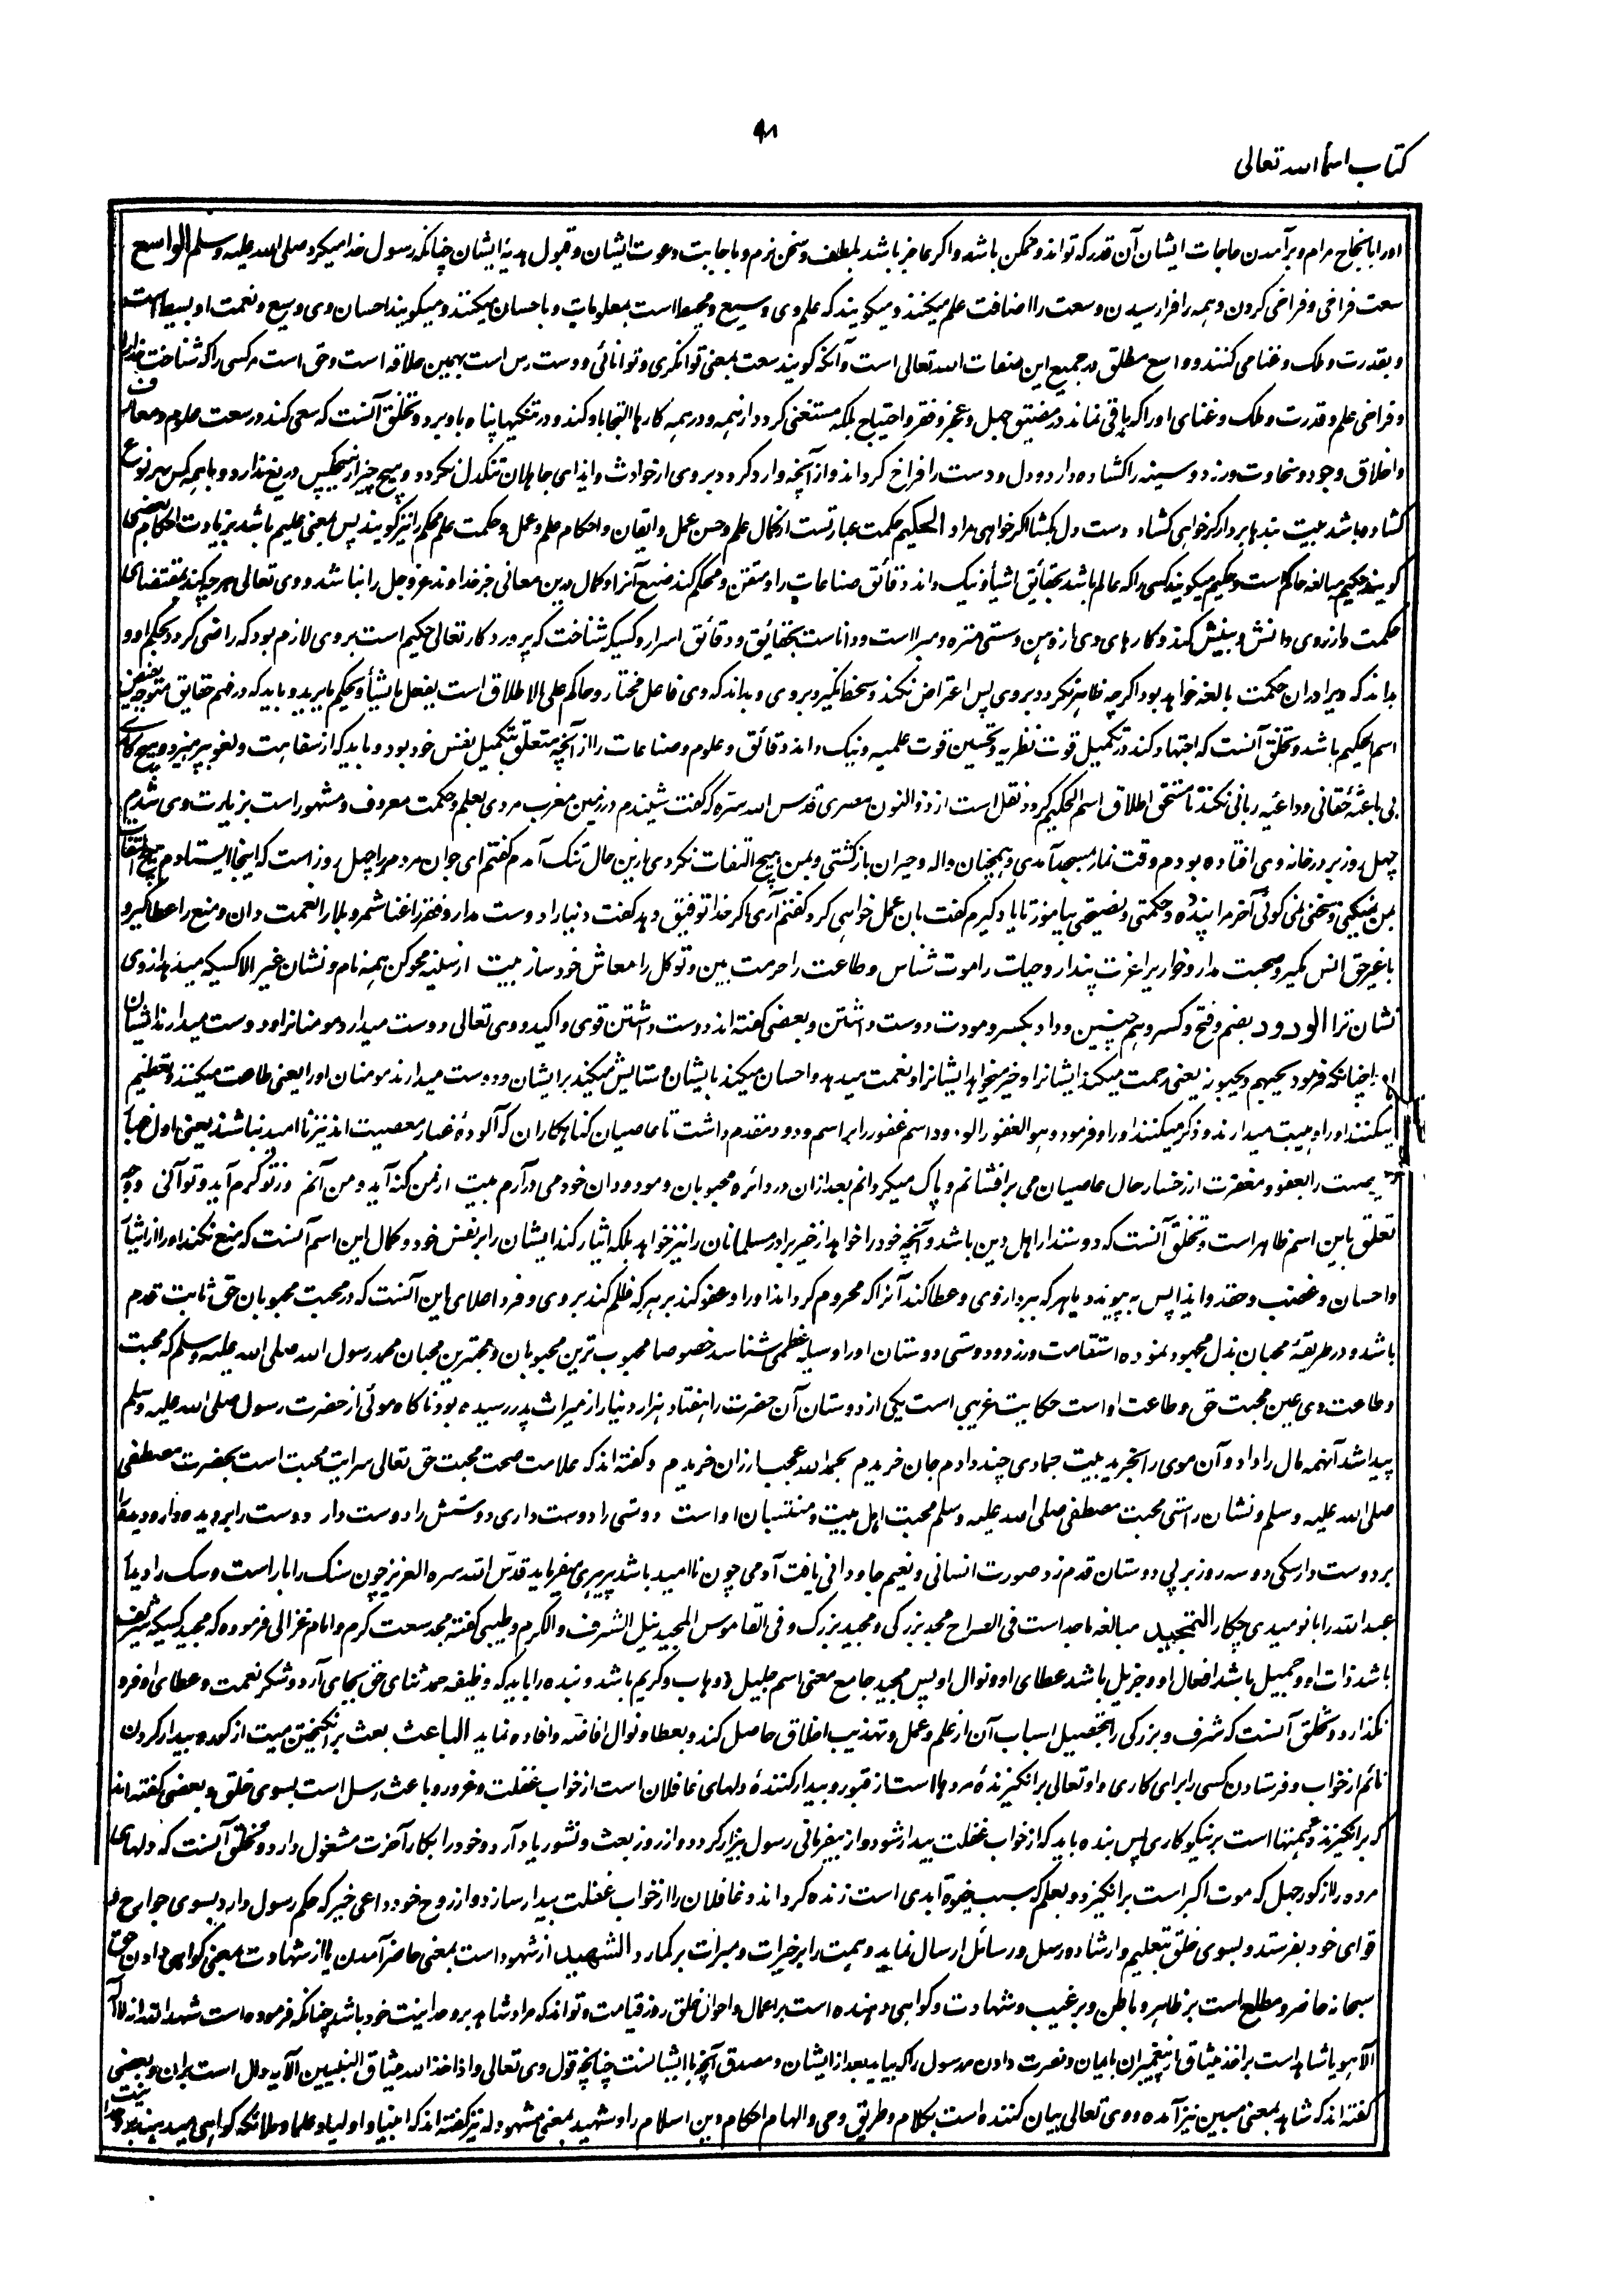 ۹۸
کتاب اسمأ الله تعالی
اورا بانجاح مرام و برآمدن حاجات ایشان آن قدر که تواند و ممکن باشد و اگر عاجز باشد بلطف و سخن نرم و باجابت دعوت ایشان و قبول هدیهٔ ایشان چنانکه رسول خدا میکرد صلی الله علیه وسلم الواسع
سعت فراخی و فراخی کردن و همه را فرا رسیدن و سعت را اضافت بعلم میکنند و میگویند که علم وی وسیع و محیط است بمعلومات و باحسان میکنند و میگویند احسان وی وسیع و نعمت او بسیط است
و بقدرت و ملک و غنا می کنند و واسع مطلق در جمیع این صفات الله تعالی است و آنکه گویند سعت بمعنی توانگری و توانائی و دست رس است بهمین علاقه است و حق است مر کسی را که شناخت خدا را
و فراخی علم و قدرت و ملک و غنای او را که باقی نماند در مضیق جهل و عجز و فقر و احتیاج بلکه مستغنی گردد از همه و در همه کارها التجا باو کند و در تنگیها پناه باو برد و تخلق آنست که سعی کند در سعت علوم و معارف
و اخلاق وجود و سخاوت ورزد و سینه را کشاده دارد و دل و دست را فراخ گرداند و از آنچه وارد گردد بروی از حوادث و ایذای جاهلان تنگدل نگردد و هیچ چیز از هیچکس دریغ ندارد و با همه کس بهر نوع
کشاده باشد بیت بندها بردار گر خواهی کشاد دست دل بکشا اگر خواهی مراد الحکیم حکمت عبارتست از کمال علم و حسن عمل و ایقان و احکام علم و عمل و حکمت علم محکم را نیز گویند پس بمعنی علیم باشد بزیادت احکام بعضی
گویند حکیم مبالغه حاکم است و حکیم میگویند کسی را که عالم باشد بحقائق اشیأ و نیک داند دقائق صناعات را و متقن و محکم کند صنع آنرا و کمال درین معانی جز خداوند عز وجل را نباشد و وی تعالی هرچه کند بمقتضای
حکمت و از روی دانش و بینش کند و کارهای وی از وهن و سستی منزه و مبرا است و دانا است بحقائق و دقائق اسرار و کسیکه شناخت که پروردگار تعالی حکیم است بروی لازم بود که راضی گردد بحکم او و
بداند که ویرا دران حکمت بالغه خواهد بود اگرچه ظاهر نگردد بروی پس اعتراض نکند و سخط نگیرد بروی و بداند که وی فاعل مختار و حاکم علی الاطلاق است یفعل ما یشأ و یحکم ما یرید و باید که در فهم حقایق متوجه بفیض
اسم الحکیم باشد و تخلق آنست که اجتهاد کند در تکمیل قوت نظریه و تحسین قوت علمیه و نیک داند دقائق و علوم و صناعات را از آنچه متعلق بتکمیل نفس خود بود و باید که از سفاهت و لغو بپرهیزد و هیچ کاری
بی باعثهٔ حقانی و داعیه ربانی نکند تا مستحق اطلاق اسم الحکیم گردد نقل است از ذو النون مصری قدس الله سره که گفت شنیدم در زمین مغرب مردی بعلم و حکمت معروف و مشهور است بزیارت وی شدم
چهل روز بر در خانه وی افتاده بودم وقت نماز مسجد آمدی و همچنان واله و حیران باز گشتی و بمن هیچ التفات نکردی ازین حال تنگ آمدم گفتم ای جوان مرد مرا چهل روز است که اینجا ایستاده ام هیچ التفات
بمن نمیکنی و سخن نمی گوئی آخر مرا پند ده و حکمتی و نصیحتی بیاموز تا یاد گیرم گفت بآن عمل خواهی کرد گفتم آری اگر خدا توفیق دهد گفت دنیا را دوست مدار و فقر را غنا شمر و بلا را نعمت دان و منع را عطا گیر و
با غیر حق انس مگیر و صحبت مدار و خواری را عزت پندار و حیات را موت شناس و طاعت را حرمت بین و توکل را معاش خود ساز بیت از سینه محو کن همه نام و نشان غیر الا کسیکه میدهد از وی
نشان ترا الودود بضم و فتح و کسر و همچنین وداد بکسر و مودت دوست داشتن و بعضی گفته اند دوست داشتن قوی و اکید و وی تعالی دوست میدارد مومنانرا و دوست میدارند ایشان
چنانکه فرمود یحبهم و یحبونه یعنی رحمت میکند ایشانرا و خیر میخواهد ایشانرا و نعمت میدهد و احسان میکند بایشان و ستایش میکند بر ایشان و دوست میدارند مومنان او را یعنی طاعت میکنند و تعظیم
میکنند او را و هیبت میدارند و ذکر میکنند او را و فرمود و هو الغفور الودود اسم غفور را بر اسم ودود مقدم داشت تا عاصیان گناهکاران که آلودهٔ غبار معصیت اند نیز نا امید نباشند یعنی اول غبار
معصیت را بعفو و مغفرت از رخسار حال عاصیان می برافشانم و پاک میگردانم بعد ازان در دائره محبوبان و مودودان خود می درآرم بیت از من گنه آید و من آنم وز تو کرم آید و تو آنی و وجه
تعلق باین اسم ظاهر است و تخلق آنست که دوستدار اهل دین باشد و آنچه خود را خواهد از خیر برادر مسلمانان را نیز خواهد بلکه ایثار کند ایشان را بر نفس خود و کمال این اسم آنست که منع نکند او را از ایثار
و احسان و غضب و حقد و ایذا پس بپیوندد با هر که ببرد از وی و عطا کند آنرا که محروم گرداند او را و عفو کند بر هر که ظلم کند بروی و فرد اعلای این آنست که در محبت محبوبان حق ثابت قدم
باشد و در طریقهٔ محبان بذل مجهود نموده استقامت ورزد و دوستی دوستان او را وسیله عظمی شناسد خصوصا محبوب ترین محبوبان و مهترین محبان محمد رسول الله صلی الله علیه وسلم که محبت
و طاعت وی عین محبت حق و طاعت او است حکایت غریبی است یکی از دوستان آن حضرت را هفتاد هزار دینار از میراث پدر رسیده بود ناگاه موئی از حضرت رسول صلی الله علیه وسلم
پیدا شد آنهمه مال را داد و آن موی را بخرید بیت جمادی چند دادم جان خریدم بحمد الله عجب ارزان خریدم و گفته اند که علامت صحت محبت حق تعالی سرایت محبت است بحضرت مصطفی
صلی الله علیه وسلم و نشان راستی محبت مصطفی صلی الله علیه وسلم محبت اهل بیت و منتسبان او است دوستی را دوست داری دوستش را دوست دار دوست را بر دیده دار و دیده را
بر دوست دار سگی دو سه روز بر پی دوستان قدم زد صورت انسانی و نعیم جاودانی یافت آدمی چون نا امید باشد پیر هری میفرماید قدس الله سره العزیز چون سنگ را بار است و سگ را دیدار
عبد الله را با نومیدی چکار المجید مبالغه ماجد است فی الصراح مجد بزرگی و مجید بزرگ و فی القاموس المجید نیل الشرف والکرم و طیبی گفته مجد سعت کرم و امام غزالی فرموده که مجید کسیکه شریف
باشد ذات او و جمیل باشد افعال او و جزیل باشد عطای او و نوال او پس مجید جامع معنی اسم جلیل و وهاب و کریم باشد و بنده را باید که وظیفه حمد ثنای حق بجای آرد و شکر نعمت و عطای او فرو
نگذارد و تخلق آنست که شرف و بزرگی را بتحصیل اسباب آن از علم و عمل و تهذیب اخلاق حاصل کند و بعطا و نوال افاضه و افاده نماید الباعث بعث برانگیختن میت از گور و بیدار کردن
نائم از خواب و فرستادن کسی را برای کاری و او تعالی برانگیزندهٔ مردها است از قبور و بیدار کنندهٔ دلهای غافلان است از خواب غفلت و غرور و باعث رسل است بسوی خلق و بعضی گفته اند
که برانگیزندهٔ همتها است بر نیکوکاری پس بنده باید که از خواب غفلت بیدار شود و از بیفرمانی رسول بیزار گردد و از روز بعث و نشور یاد آرد و خود را بکار آخرت مشغول دارد و تخلق آنست که دلهای
مرده را از گور جهل که موت اکبر است برانگیزد و بعلم که سبب حیوة ابدی است زنده گرداند و غافلان را از خواب غفلت بیدار سازد و از روح خود داعی خیر که حکم رسول دارد بسوی جوارح و
قوای خود بفرستد و بسوی خلق بتعلیم و ارشاد رسل و رسائل ارسال نماید و همت را بر خیرات و مبرات برگمارد الشهید از شهود است بمعنی حاضر آمدن یا از شهادت بمعنی گواهی دادن حق
سبحانه حاضر و مطلع است بر ظاهر و باطن و بر غیب و شهادت و گواهی دهنده است بر اعمال و احوال خلق روز قیامت و تواند که مراد شاهد بر وحدانیت خود باشد چنانکه فرموده است شهد الله انه لا اله
الا هو یا شاهد است بر اخذ میثاق از پیغمبران بایمان و نصرت دادن مر رسول را که بیاید بعد از ایشان و مصدق آنچه با ایشانست چنانچه قول وی تعالی و اذ اخذ الله میثاق النبیین الآیه دال است بران و بعضی
گفته اند که شاهد بمعنی مبین نیز آمده و وی تعالی بیان کننده است بکلام و طریق وحی و الهام احکام دین اسلام را و شهید بمعنی مشهود له نیز گفته اند که انبیا و اولیا و علما و ملائکه گواهی میدهند بوحدانیت